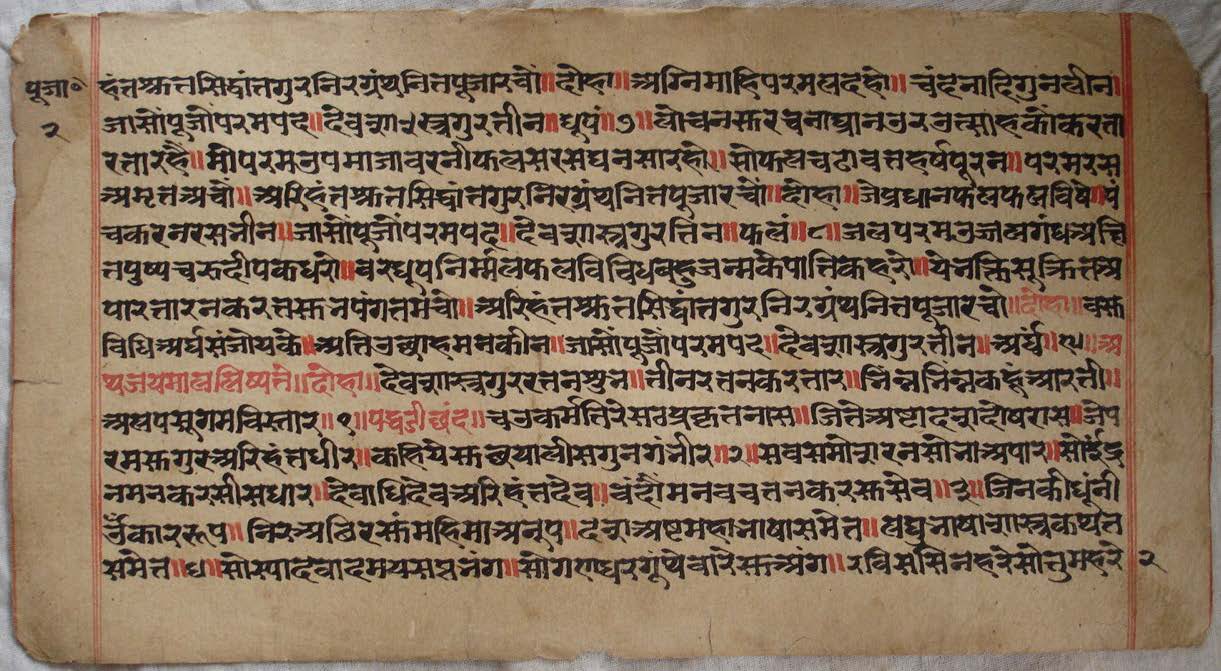 पूजा॰
२
हंतश्रुतसिद्धांतगुरनिरग्रंथनितपूजारचौं॥दोहा॥अग्निमाहिपरमलदहौ॥चंदनादिगुनलीन॥
जासौंपूजौंपरमपद॥देवशास्त्रगुरतीन॥धूपं॥७॥लोचनसुरसनाघ्रानउरउत्साहकौंकरता
रतारहै॥मोपरमउपमाजावरनीफलसरसघनसारहौ॥सोफलचढावतहर्षपूरन॥परमरस
अमृतअचौ॥अरिहंतश्रुतसिद्धांतगुरनिरग्रंथनितपूजारचौं॥दोहा॥जेप्रधानफलफलविषे॥पं
चकरनरसलीन॥जासौंपूजौंपरमपद॥देवशास्त्रगुरतिन॥फलं॥८॥जलपरमउजलगंधअछि
तपुष्पचरुदीपकधरौ॥वरधूपनिर्म्मलफलविविधबहुजन्मकेपातिकहरौ॥
पारतारनकरत अरिहंतश्रुतसिद्धांतगुरनिरग्रंथनितपूजारचौ॥दोहा॥वसु
विधिअर्घसंजोयकै॥अतिउछाहमनकीन॥जासौंपूजौंपरमपद॥देवशास्त्रगुरतीन॥अर्घं॥९॥अ
थजयमाललिष्यते॥दोहा॥देवशास्त्रगुररतनशुभ॥तीनरतनकरतार॥भिन्नभिन्नकहूंआरती॥
अलपसुगमविस्तार॥१॥पद्धडीछंद॥चउकर्मतिरेसठप्रकृतनास॥जितेअष्टादशदोषरास॥जेप
रमसुगुरुअरिहंतधीर॥कहियेसुछयालीसगुनगंभीर॥२॥सवसमोशरनसोभाअपार॥सोईंद्र
नमनकरसीसधार॥देवाधिदेवअरिहंतदेव॥वंदौंमनवचतनकरसुसेव॥३॥जिनकीधूंनी
र्उंकाररूप॥निरअछिरसुंमहिमाअनुप॥दशअष्टमहाभाषासमेत॥लघुभाषाशास्त्रकथन
समेत॥४॥सोस्यादवादमयसप्तभंग॥सोगणधरगूंथेबारैसुअंग॥रविससिनहरेसोतुमहरे
२